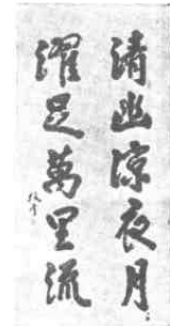 清幽涼夜月
濯足萬里流